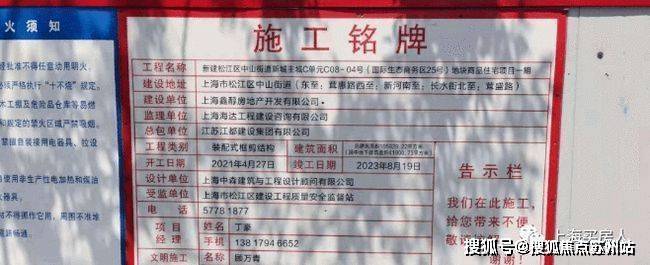 火须知
经批准不得任意动用明火,
必须严格执行"十不烧"规定。
木工棚及危险品仓库等易燃
的禁火区域严禁吸烟。
施工铭牌
工程名称 新建松江区中山街道新城主城C单元C08-04号(国际生态商务区25号)地块商品住宅项目一期
建设地址 上海市松江区中山街道(东至:茸惠路西至:新河南至:长水街北至:茸盛路)
建设单位 上海鑫醇房地产开发有限公司
监理单位 上海海达工程建设咨询有限公司
总包单位 江苏江都建设集团有限公司
工程类别 装配式框剪结构 建筑面积
开工日期 2021年4月27日 竣工日期 2023年8月19日
设计单位 上海中森建筑与工程设计顾问有限公司
受监单位 上海市松江区建设工程质量安全监督站
电话 5778 1877
项目经理 姓名 丁豪
手机 138 1794 6652
文明施工 姓名 顾万青
告示栏
我们在此施工,
给您带来不便,
敬请谅解
谢谢!
上海买房人
搜狐号@搜狐焦点苏州站